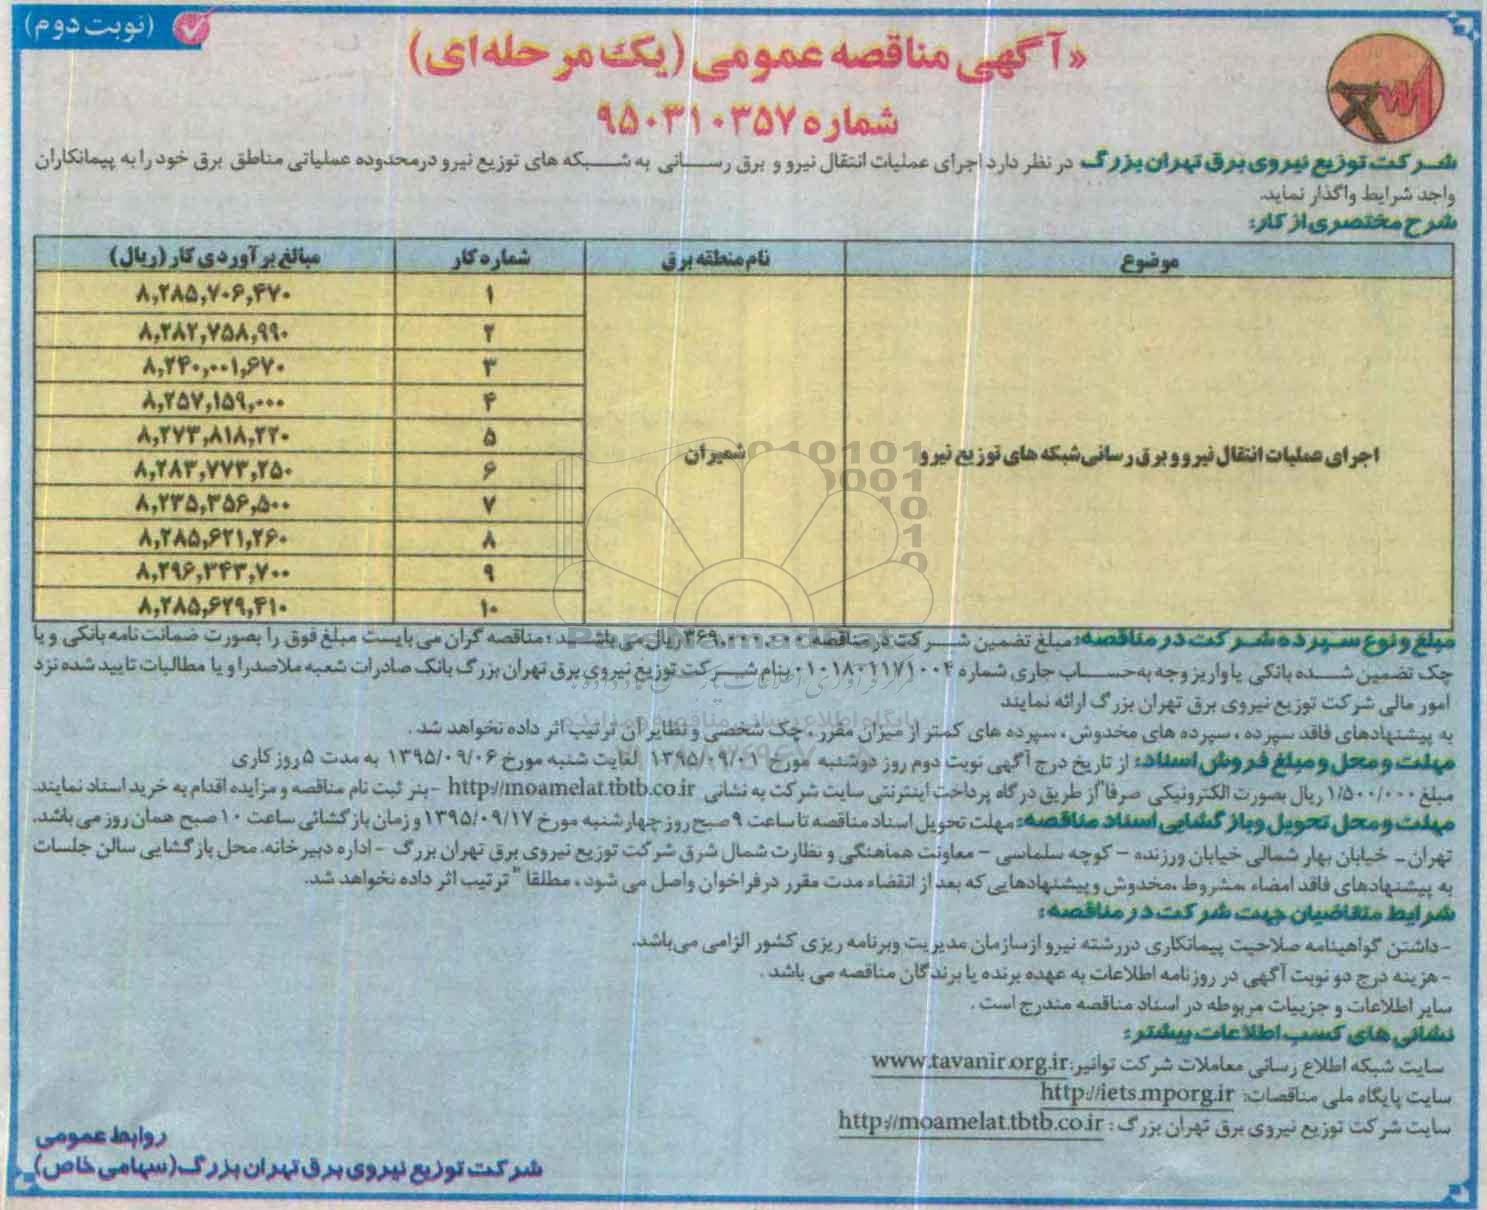 (نوبت دوم)
«آگهی مناقصه عمومی (یک مرحله‌ای)
شماره ۹۵۰۳۱۰۳۵۷
شرکت توزیع نیروی برق تهران بزرگ در نظر دارد اجرای عملیات انتقال نیرو و برق رسانی به شبکه های توزیع نیرو درمحدوده عملیاتی مناطق برق خود را به پیمانکاران
واجد شرایط واگذار نماید.
شرح مختصری از کار:
موضوع نام منطقه برق شماره کار مبالغ برآوردی کار (ریال)
۱ ۸,۲۸۵,۷۰۶,۴۷۰
۲ ۸,۲۸۲,۷۵۸,۹۹۰
۳ ۸,۲۴۰,۰۰۱,۶۷۰
۴ ۸,۲۵۷,۱۵۹,۰۰۰
۵ ۸,۲۷۳,۸۱۸,۲۲۰
اجرای عملیات انتقال نیرو و برق رسانی شبکه های توزیع نیرو شمیران
۶ ۸,۲۸۳,۷۷۳,۲۵۰
۷ ۸,۲۳۵,۳۵۶,۵۰۰
۸ ۸,۲۸۵,۶۲۱,۲۶۰
۹ ۸,۲۹۶,۳۴۳,۷۰۰
۱۰ ۸,۲۸۵,۶۲۹,۴۱۰
مبلغ و نوع سپرده شرکت در مناقصه: مبلغ تضمین شرکت در مناقصه ۳۶۹,۰۰۰,۰۰۰ ریال می باشد، مناقصه گران می بایست مبلغ فوق را بصورت ضمانت نامه بانکی و یا
چک تضمین شده بانکی یا واریز وجه به حساب جاری شماره ۰۱۰۱۸۰۱۱۷۱۰۰۴ بنام شرکت توزیع نیروی برق تهران بزرگ بانک صادرات شعبه ملاصدرا و یا مطالبات تایید شده نزد
امور مالی شرکت توزیع نیروی برق تهران بزرگ ارائه نمایند
به پیشنهادهای فاقد سپرده ، سپرده های مخدوش ، سپرده های کمتر از میزان مقرر ، چک شخصی و نظایر آن ترتیب اثر داده نخواهد شد .
مهلت و محل و مبلغ فروش اسناد: از تاریخ درج آگهی نوبت دوم روز دوشنبه مورخ ۱۳۹۵/۰۹/۰۱ لغایت شنبه مورخ ۱۳۹۵/۰۹/۰۶ به مدت ۵ روز کاری
مبلغ ۱/۵۰۰/۰۰۰ ریال بصورت الکترونیکی صرفا" از طریق درگاه پرداخت اینترنتی سایت شرکت به نشانی http://moamelat.tbtb.co.ir -بنر ثبت نام مناقصه و مزایده اقدام به خرید اسناد نمایند.
مهلت و محل تحویل و بازگشایی اسناد مناقصه: مهلت تحویل اسناد مناقصه تا ساعت ۹ صبح روز چهارشنبه مورخ ۱۳۹۵/۰۹/۱۷ و زمان بازگشائی ساعت ۱۰ صبح همان روز می باشد.
تهران- خیابان بهار شمالی خیابان ورزنده – کوچه سلماسی – معاونت هماهنگی و نظارت شمال شرق شرکت توزیع نیروی برق تهران بزرگ - اداره دبیرخانه. محل بازگشایی سالن جلسات
به پیشنهادهای فاقد امضاء ،مشروط ،مخدوش و پیشنهادهایی که بعد از انقضاء مدت مقرر در فراخوان واصل می شود ، مطلقا " ترتیب اثر داده نخواهد شد.
شرایط متقاضیان جهت شرکت در مناقصه:
-داشتن گواهینامه صلاحیت پیمانکاری دررشته نیرو ازسازمان مدیریت وبرنامه ریزی کشور الزامی می‌باشد.
- هزینه درج دو نوبت آگهی در روزنامه اطلاعات به عهده برنده یا برندگان مناقصه می باشد .
سایر اطلاعات و جزییات مربوطه در اسناد مناقصه مندرج است .
نشانی های کسب اطلاعات بیشتر:
سایت شبکه اطلاع رسانی معاملات شرکت توانیر: www.tavanir.org.ir
سایت پایگاه ملی مناقصات: http://iets.mporg.ir
سایت شرکت توزیع نیروی برق تهران بزرگ : http://moamelat.tbtb.co.ir
روابط عمومی
شرکت توزیع نیروی برق تهران بزرگ (سهامی خاص)